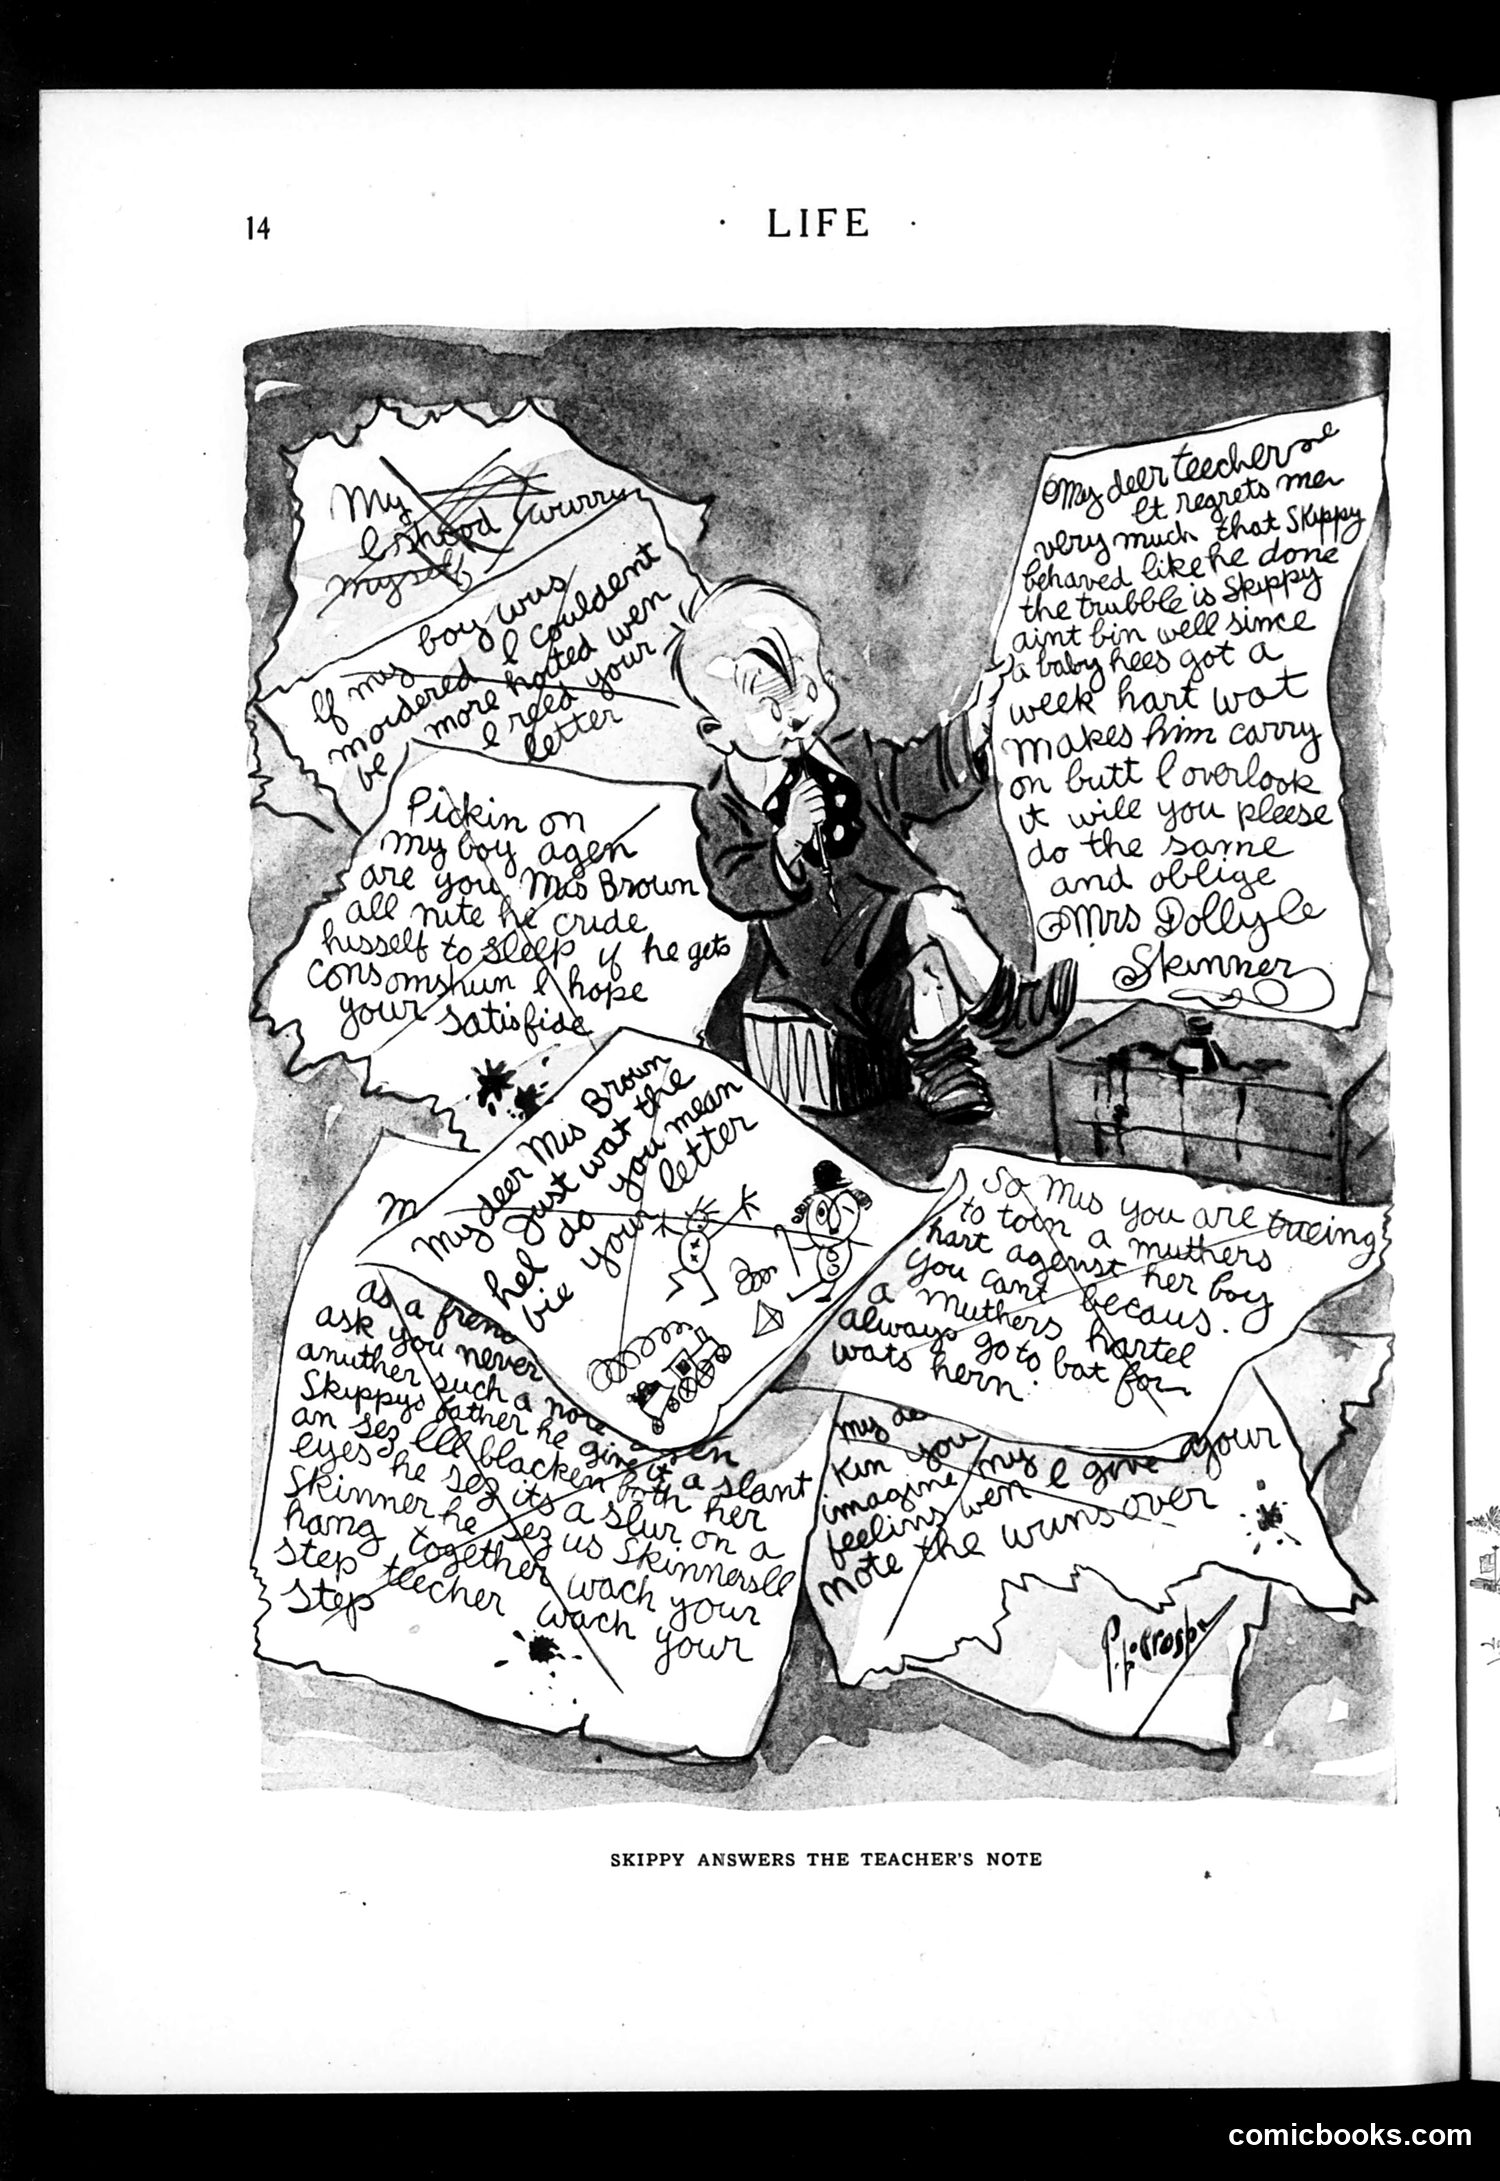 14
· LIFE ·
My
I shood wurry
myself
If my boy wus
moidered I couldent
be more hoited wen
I reed your
letter
Pickin on
my boy agen
are you Mis Brown
all nite he cride
hisself to sleep if he gets
consomshun I hope
your satisfide
My deer teecher
It regrets me
very much that Skippy
behaved like he done
the trubble is Skippy
aint bin well since
a baby hees got a
week hart wot
makes him carry
on butt I overlook
it will you pleese
do the same
and oblige
Mrs Dolly le
Skinner
My deer Mis Brown
Just wat the
hel do you mean
bie your letter
M
as a frend
ask you never
anuther such a note
Skippys father he give it a slant
an sez Ill blacken both her
eyes he sez its a slur on a
Skinner he sez us Skinners ll
hang together wach your
step teecher wach your
step
So Mis you are
to toin a muthers
hart agenst her boy
You cant becaus.
a muthers hartel
always go to bat for
wats hern.
my de
Kin you imagine my
feelins wen I give your
note the wuns over
P. L. Crosby
SKIPPY ANSWERS THE TEACHER'S NOTE
comicbooks.com